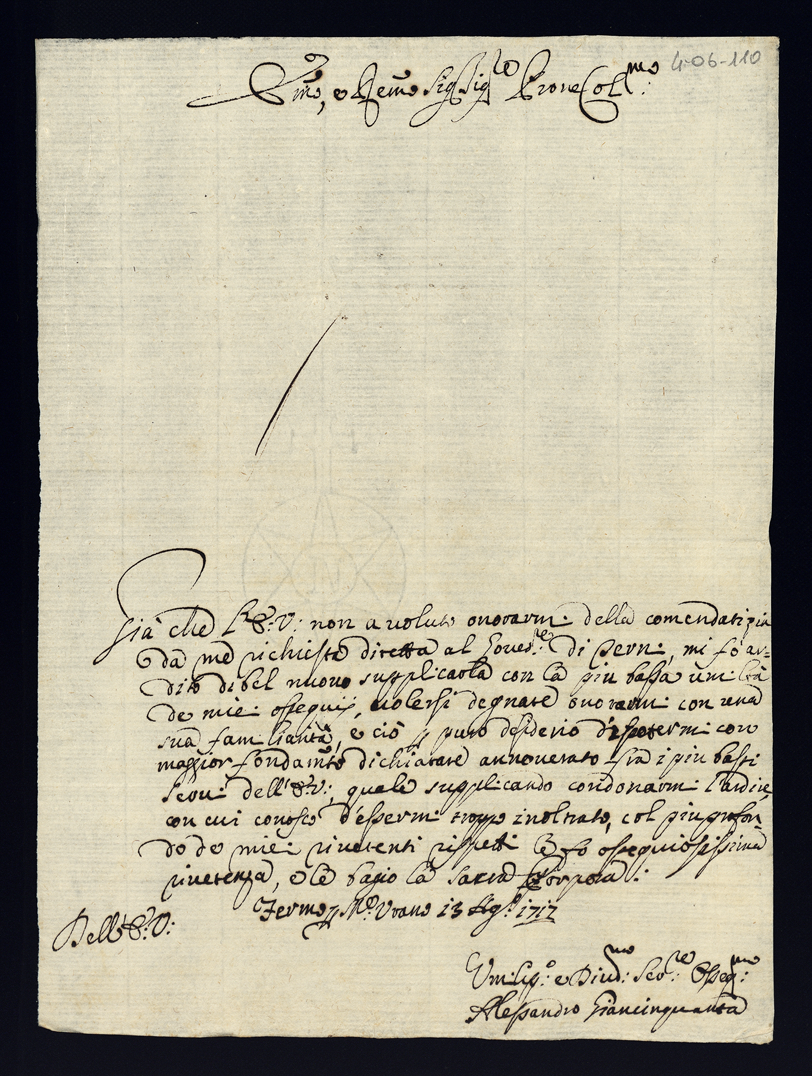 4-06-110
Em̃o, e Rem̃o Sig Sig.re Prone Col.mo:
Già che l'E: V: non a voluto onorarmi della comendatizia
da me richiesta diretta al Gover.re di Servi, mi fò ar=
dito di bel nuovo supplicarla con la piu bassa umiltà
de miei ossequij, volersi degnare onorarmi con una
sua familiarità, e ciò p puro desiderio di potermi con
maggior fondam̃to dichiarare annoverato frà i piu bassi
Servi dell'E: V:, quale supplicando condonarmi l'ardire,
con cui conosco d'essermi troppo inoltrato, col più profon
do de miei riverenti rispetti le fo ossequiosissima
riverenza, e le bagio la sacra Porpora:
Fermo p M.e Urano 13 Ag.o 1717
Dell'E: V:
Um:lis.o e Div.mo: Ser.re: Osseq.mo:
Alessandro Giancinquanta